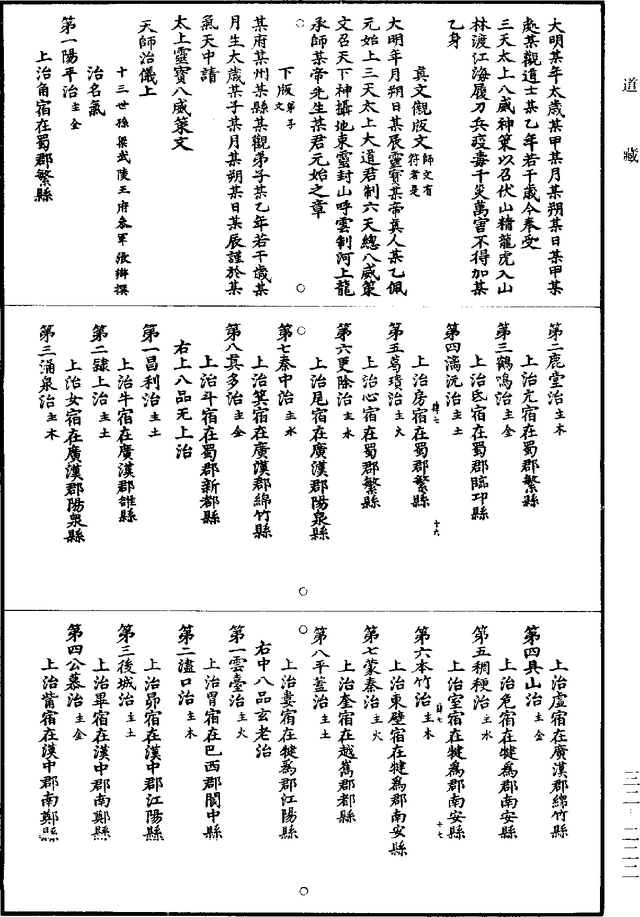 道藏
大明某年太歲某甲某月某朔某日某甲某
處某觀道士某乙年若干歲今奉受
三天太上八威神策以召伏山精龍虎入山
林渡江海履刀兵疫毒千災萬害不得加某
乙身
真文觀版文師文有符者是
大明年月朔日某辰靈寶某帝真人某乙佩
元始上三天太上大道君制六天總八威策
文召天下神攝地東靈封山呼雲制河上龍
承師某帝先生某君元始之章
下版弟子文
某府某州某縣某觀弟子某乙年若干歲某
月生太歲某子某月某朔某日某辰謹於某
氣天中請
太上靈寶八威策文
天師治儀上
十三世孫梁武陵王府參軍張辯撰
治名氣
第一陽平治主金
上治角宿在蜀郡繁縣
第二鹿堂治主木
上治亢宿在蜀郡繁縣
第三鶴鳴治主金
上治氐宿在蜀郡臨邛縣
第四漓沅治主土
上治房宿在蜀郡繁縣
肆七
十六
第五葛璝治主火
上治心宿在蜀郡繁縣
第六更除治主水
上治尾宿在廣漢郡陽泉縣
第七秦中治主水
上治箕宿在廣漢郡綿竹縣
第八真多治主金
上治斗宿在蜀郡新都縣
右上八品无上治
第一昌利治主土
上治牛宿在廣漢郡雒縣
第二隸上治主土
上治女宿在廣漢郡陽泉縣
第三涌泉治主木
上治虛宿在廣漢郡綿竹縣
第四具山治主金
上治危宿在犍為郡南安縣
第五稠稉治主水
上治室宿在犍為郡南安縣
肆七
十七
第六本竹治主木
上治東壁宿在犍為郡南安縣
第七蒙秦治主火
上治奎宿在越嶲郡都縣
第八平蓋治主土
上治婁宿在犍為郡江陽縣
右中八品玄老治
第一雲臺治主火
上治胃宿在巴西郡閬中縣
第二濜口治主木
上治昴宿在漢中郡江陽縣
第三後城治主土
上治畢宿在漢中郡南鄭縣
第四公慕治主金
上治觜宿在漢中郡南鄭縣
三二·二二二